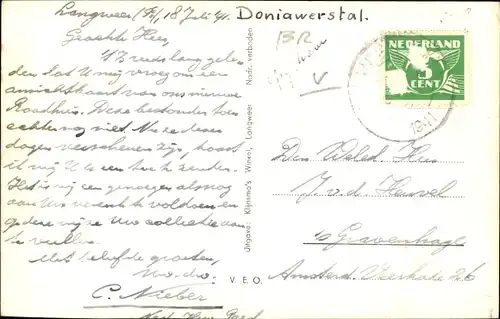 Langweer (Fr.), 18 Juli 41.
Doniawerstal.
Geachte Heer,
't Is reeds lang geleden
dat U mij vroeg om een
ansichtkaart van ons nieuwe
Raadhuis. Deze bestonden toen
echter nog niet. Nu ze dezer
dagen verschenen zijn, haast
ik mij U er een toe te zenden.
Het is mij een genoegen alsnog
aan Uw verzoek te voldoen en
Uw collectie aan
te vullen.
Met beleefde groeten,
C. Nieber
Uitgave: Klijnma's Winkel, Langweer Nadr. verboden
V. E. O.
BR
V
NEDERLAND
3
CENT
1941
Den Weled. Heer
J. v. d. Heuvel
's Gravenhage
Amsterd. Veerkade 26